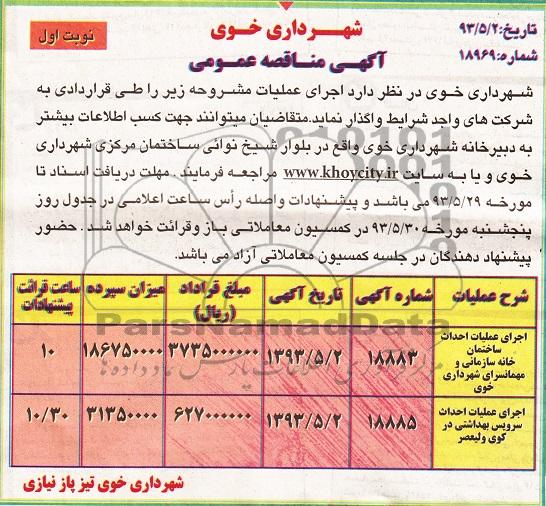 شهرداری خوی
تاریخ: ۹۳/۵/۲
شماره: ۱۸۹۶۹
نوبت اول
آگهی مناقصه عمومی
شهرداری خوی در نظر دارد اجرای عملیات مشروحه زیر را طی قراردادی به
شرکت های واجد شرایط واگذار نماید.متقاضیان میتوانند جهت کسب اطلاعات بیشتر
به دبیرخانه شهرداری خوی واقع در بلوار شیخ نوائی ساختمان مرکزی شهرداری
خوی و یا به سایت www.khoycity.ir مراجعه فرمایند . مهلت دریافت اسناد تا
مورخه ۹۳/۵/۲۹ می باشد و پیشنهادات واصله رأس ساعت اعلامی در جدول روز
پنجشنبه مورخه ۹۳/۵/۳۰ در کمسیون معاملاتی باز وقرائت خواهد شد . حضور
پیشنهاد دهندگان در جلسه کمسیون معاملاتی آزاد می باشد.
شرح عملیات شماره آگهی تاریخ آگهی مبلغ قراداد (ریال) میزان سپرده ساعت قرائت پیشنهادات
اجرای عملیات احداث
ساختمان
خانه سازمانی و
مهمانسرای شهرداری
خوی
۱۸۸۸۳ ۱۳۹۳/۵/۲ ۳۷۳۵۰۰۰۰۰۰ ۱۸۶۷۵۰۰۰۰ ۱۰
اجرای عملیات احداث
سرویس بهداشتی در
کوی ولیعصر
۱۸۸۸۵ ۱۳۹۳/۵/۲ ۶۲۷۰۰۰۰۰۰ ۳۱۳۵۰۰۰۰ ۱۰/۳۰
شهرداری خوی تیز پاز نیازی
ParsNamadData